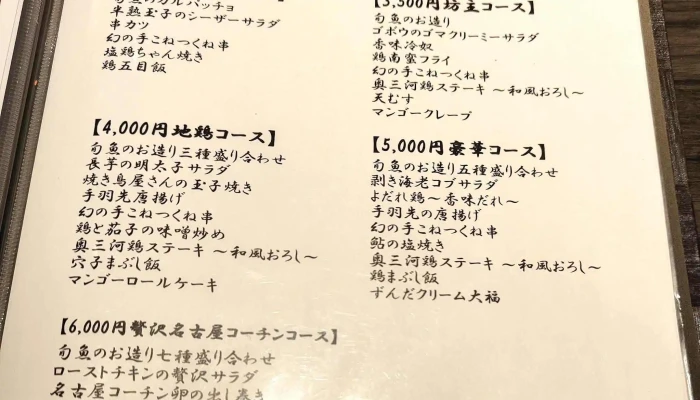 半熟玉子のシーザーサラダ
串カツ
幻の手こねつくね串
塩鶏ちゃん焼き
鶏五目飯
【4,000円地鶏コース】
旬魚のお造り三種盛り合わせ
長芋の明太子サラダ
焼き鳥屋さんの玉子焼き
手羽先唐揚げ
幻の手こねつくね串
鶏と茄子の味噌炒め
奥三河鶏ステーキ 〜和風おろし〜
穴子まぶし飯
マンゴーロールケーキ
【6,000円贅沢名古屋コーチンコース】
旬魚のお造り七種盛り合わせ
ローストチキンの贅沢サラダ
名古屋コーチン卵の出し巻き
【3,500円坊主コース】
旬魚のお造り
ゴボウのゴマクリーミーサラダ
香味冷奴
鶏南蛮フライ
幻の手こねつくね串
奥三河鶏ステーキ 〜和風おろし〜
天むす
マンゴークレープ
【5,000円豪華コース】
旬魚のお造り五種盛り合わせ
剥き海老コブサラダ
よだれ鶏〜香味だれ〜
手羽先の唐揚げ
幻の手こねつくね串
鮎の塩焼き
奥三河鶏ステーキ 〜和風おろし〜
鶏まぶし飯
ずんだクリーム大福